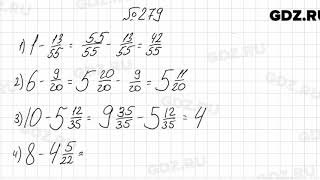 GDZ.RU
№279
1) 1 - 13/55 = 55/55 - 13/55 = 42/55
2) 6 - 9/20 = 5 20/20 - 9/20 = 5 11/20
3) 10 - 5 12/35 = 9 35/35 - 5 12/35 = 4
4) 8 - 4 5/22 =